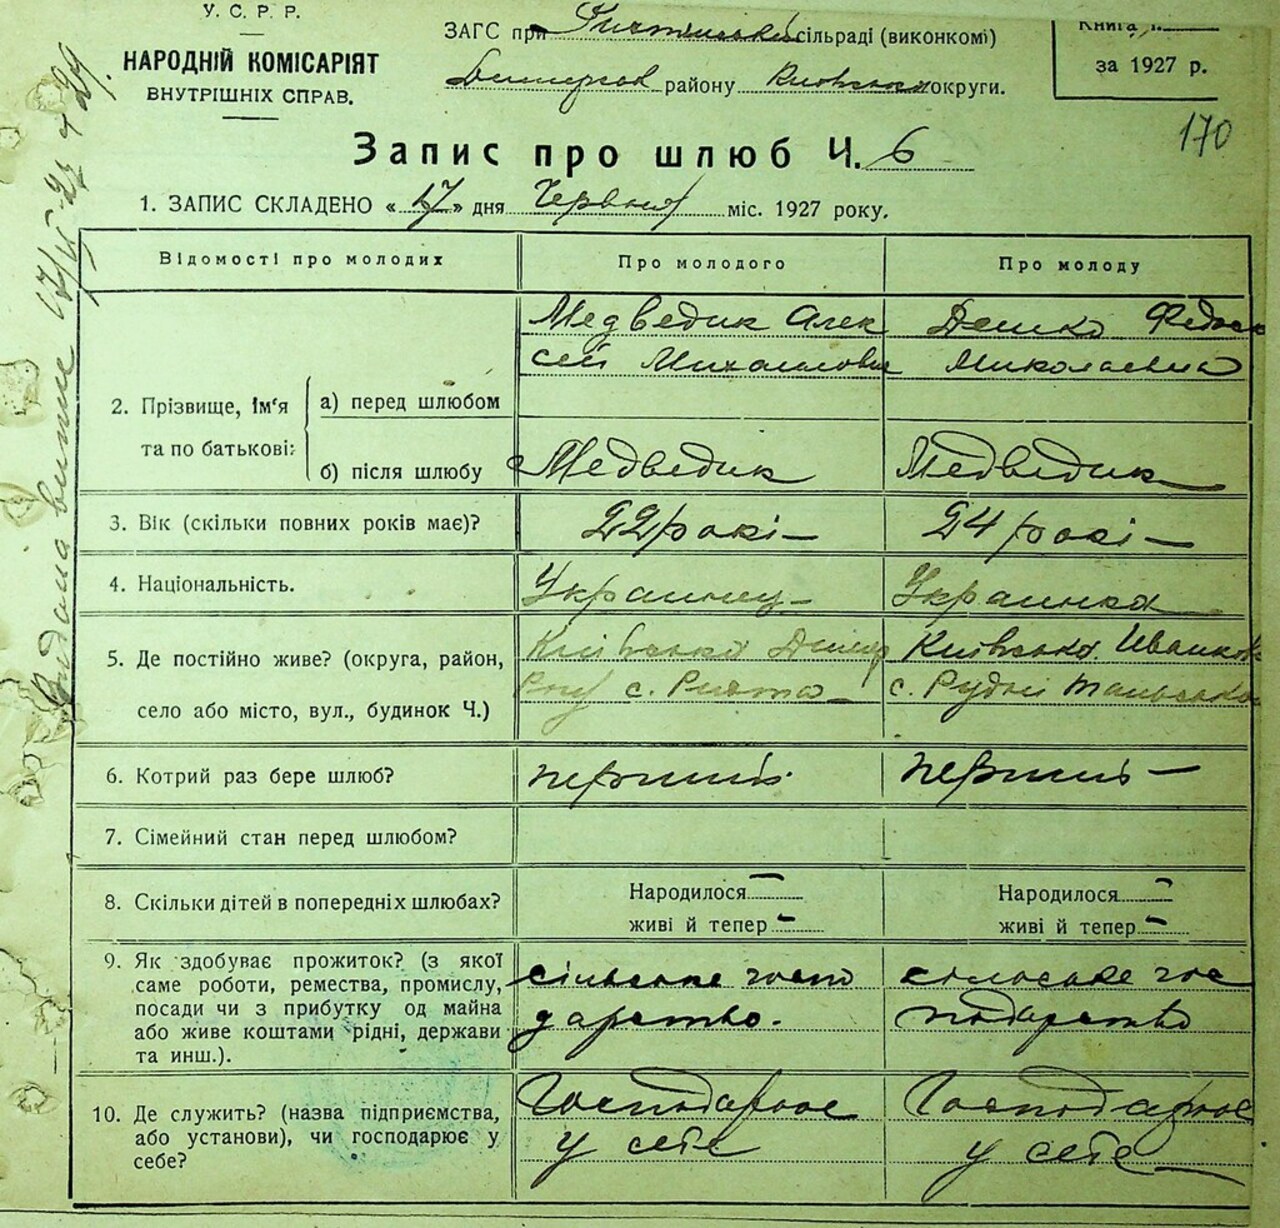 У. С. Р. Р.
НАРОДНІЙ КОМІСАРІЯТ
ВНУТРІШНІХ СПРАВ.
ЗАГС при сільраді (виконкомі)
району Київська округи.
Книга ч.
за 1927 р.
170
Запис про шлюб Ч. 6
1. ЗАПИС СКЛАДЕНО «17» дня Червня міс. 1927 року.
Відомості про молодих
Про молодого
Про молоду
2. Прізвище, Ім'я
та по батькові:
а) перед шлюбом
б) після шлюбу
Медведик Алек
сей Михаилович
Дешко
Миколаевна
Медведик
Медведик
3. Вік (скільки повних років має)?
22 рокі
24 рокі
4. Національність.
Украинец
Украинка
5. Де постійно живе? (округа, район,
село або місто, вул., будинок Ч.)
Київська Димер
с. Рихта
Київська Иванков
с. Рудні Тальська
6. Котрий раз бере шлюб?
перший
перший
7. Сімейний стан перед шлюбом?
8. Скільки дітей в попередніх шлюбах?
Народилося –
живі й тепер –
Народилося –
живі й тепер –
9. Як здобуває прожиток? (з якої
саме роботи, ремества, промислу,
посади чи з прибутку од майна
або живе коштами рідні, держави
та инш.).
сільське госпо
дарство.
сільське гос
подарство
10. Де служить? (назва підприємства,
або установи), чи господарює у
себе?
Господарює
у себе
Господарює
у себе
Видана витяг